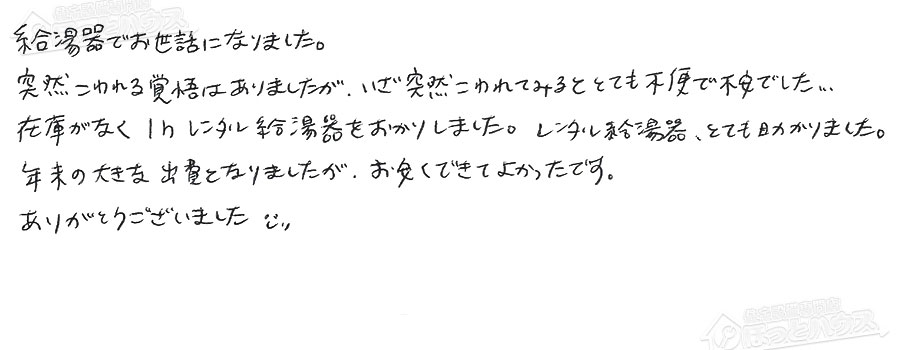 給湯器でお世話になりました。
突然こわれる覚悟はありましたが、いざ突然こわれてみるととても不便で不安でした...
在庫がなく1hレンタル給湯器をおかりしました。レンタル給湯器、とても助かりました。
年末の大きな出費となりましたが、お安くできてよかったです。
ありがとうございました
ほっとハウス